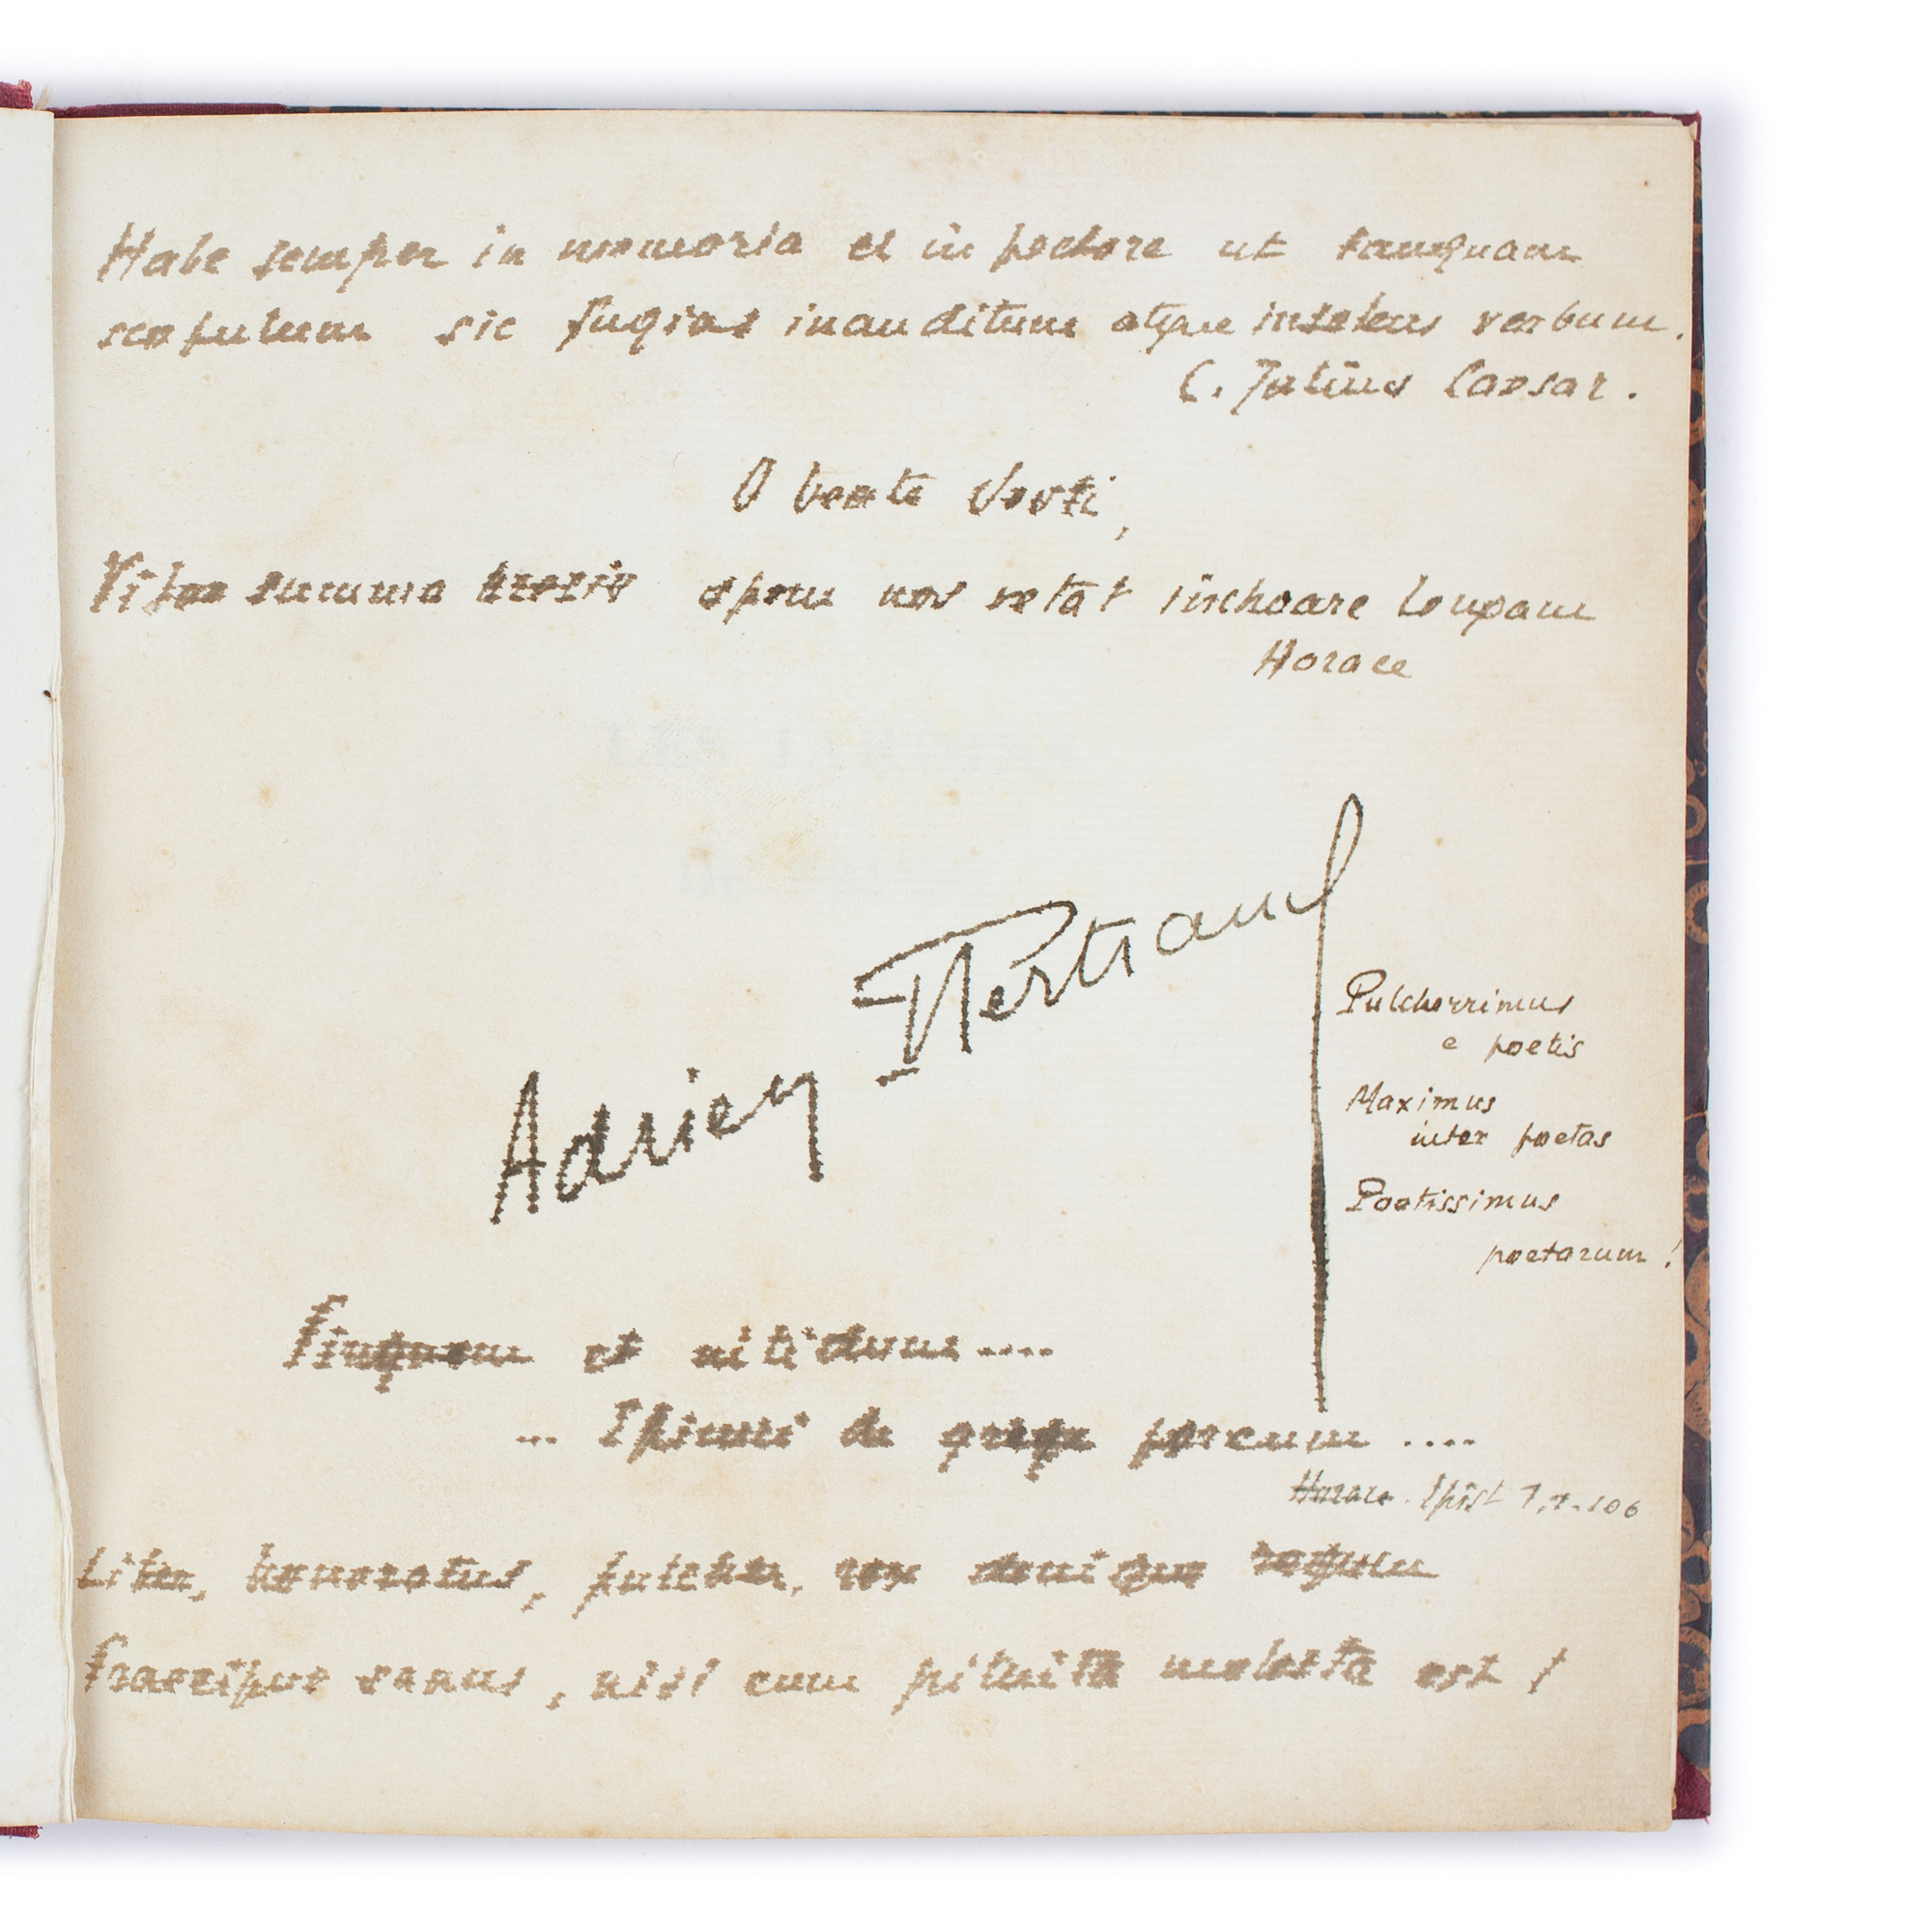 Habe semper in memoria et in pectore ut tanquam
scopulum sic fugias inauditum atque insolens verbum.
C. Julius Caesar.
O beate Sesti,
Vitae summa brevis spem nos vetat inchoare longam
Horace
Adrien Bertrand
Pulcherrimus
e poetis
Maximus
inter poetas
Poetissimus
poetarum !
Pinguem et nitidum ....
... Epicuri de grege porcum ....
Horace. Epist
Liber, honoratus, pulcher, rex denique regum
Praecipue sanus, nisi cum pituita molesta est !